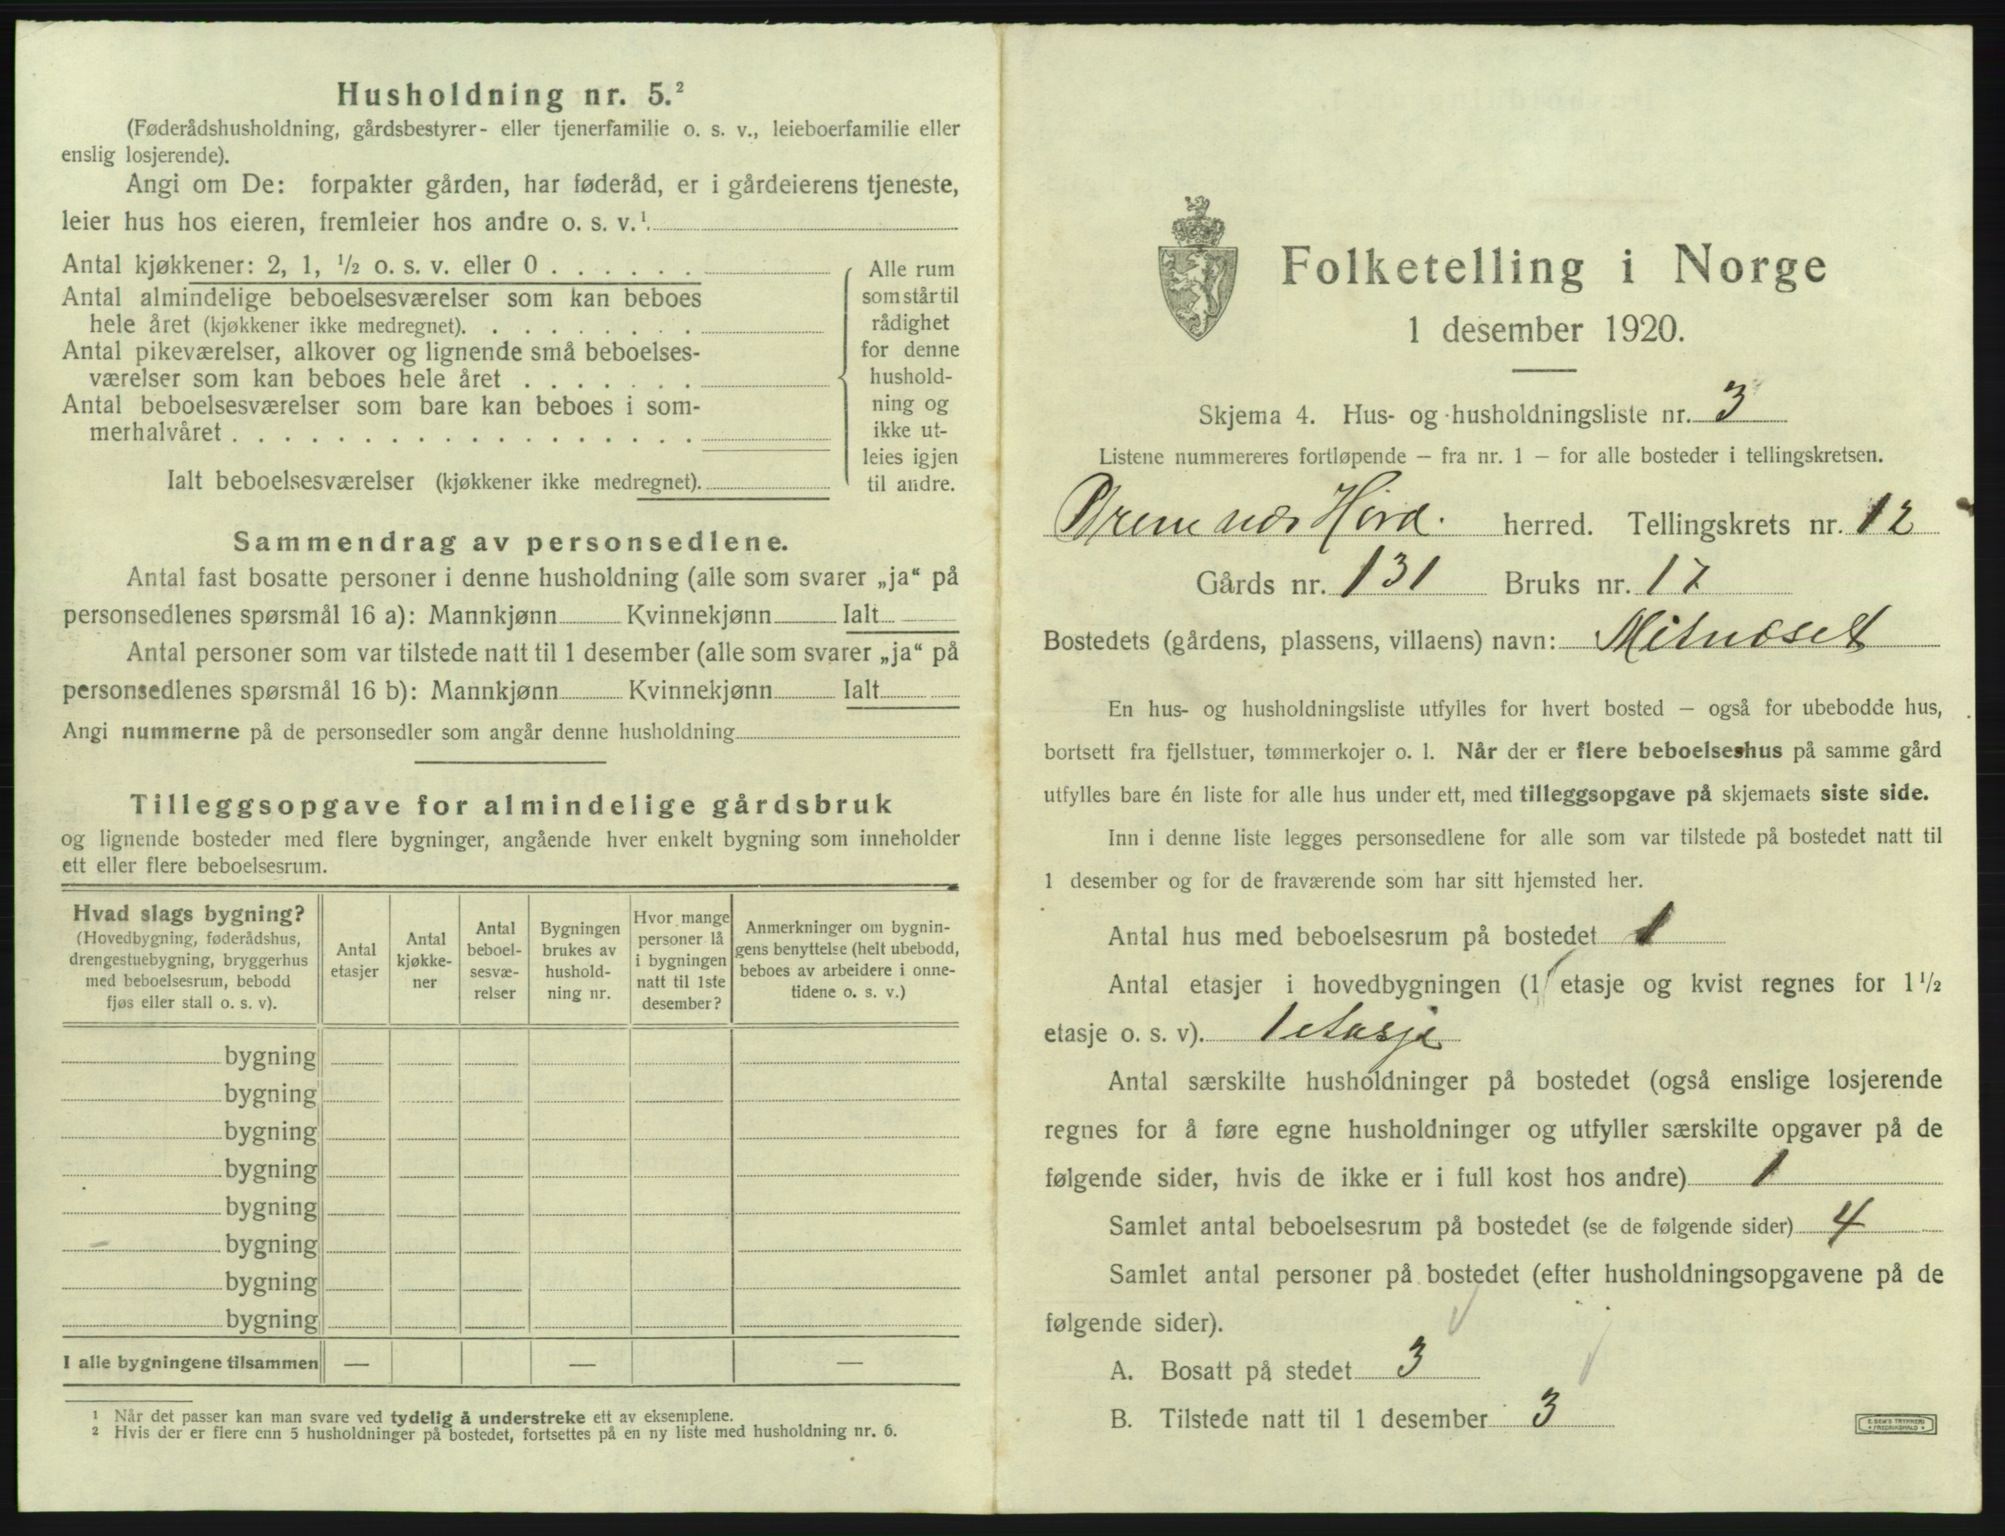 Husholdning nr. 5.²
(Føderådshusholdning, gårdsbestyrer- eller tjenerfamilie o. s. v., leieboerfamilie eller
enslig losjerende).
Angi om De: forpakter gården, har føderåd, er i gårdeierens tjeneste,
leier hus hos eieren, fremleier hos andre o. s. v.¹
Antal kjøkkener: 2, 1, ½ o. s. v. eller 0 . . . . . .
Antal almindelige beboelsesværelser som kan beboes
hele året (kjøkkener ikke medregnet). . . . . . . . .
Antal pikeværelser, alkover og lignende små beboelses-
værelser som kan beboes hele året . . . . . . .
Antal beboelsesværelser som bare kan beboes i som-
merhalvåret . . . . . . . . . . . . . . . . . .
Ialt beboelsesværelser (kjøkkener ikke medregnet).
Alle rum
som står til
rådighet
for denne
hushold-
ning og
ikke ut-
leies igjen
til andre.
Sammendrag av personsedlene.
Antal fast bosatte personer i denne husholdning (alle som svarer „ja“ på
personsedlenes spørsmål 16 a): Mannkjønn Kvinnekjønn Ialt
Antal personer som var tilstede natt til 1 desember (alle som svarer „ja“ på
personsedlenes spørsmål 16 b): Mannkjønn Kvinnekjønn Ialt
Angi nummerne på de personsedler som angår denne husholdning
Tilleggsopgave for almindelige gårdsbruk
og lignende bosteder med flere bygninger, angående hver enkelt bygning som inneholder
ett eller flere beboelsesrum.
Hvad slags bygning?
(Hovedbygning, føderådshus,
drengestuebygning, bryggerhus
med beboelsesrum, bebodd
fjøs eller stall o. s. v).
Antal
etasjer
Antal
kjøkke-
ner
Antal
beboel-
sesvæ-
relser
Bygningen
brukes av
hushold-
ning nr.
Hvor mange
personer lå
i bygningen
natt til 1ste
desember?
Anmerkninger om bygnin-
gens benyttelse (helt ubebodd,
beboes av arbeidere i onne-
tidene o. s. v.)
bygning
bygning
bygning
bygning
bygning
bygning
bygning
bygning
I alle bygningene tilsammen — — —
¹ Når det passer kan man svare ved tydelig å understreke ett av eksemplene.
² Hvis der er flere enn 5 husholdninger på bostedet, fortsettes på en ny liste med husholdning nr. 6.
Folketelling i Norge
1 desember 1920.
Skjema 4. Hus- og husholdningsliste nr. 3
Listene nummereres fortløpende — fra nr. 1 — for alle bosteder i tellingskretsen.
Bremnes Hord. herred. Tellingskrets nr. 12
Gårds nr. 131 Bruks nr. 17
Bostedets (gårdens, plassens, villaens) navn:
En hus- og husholdningsliste utfylles for hvert bosted — også for ubebodde hus,
bortsett fra fjellstuer, tømmerkojer o. l. Når der er flere beboelseshus på samme gård
utfylles bare én liste for alle hus under ett, med tilleggsopgave på skjemaets siste side.
Inn i denne liste legges personsedlene for alle som var tilstede på bostedet natt til
1 desember og for de fraværende som har sitt hjemsted her.
Antal hus med beboelsesrum på bostedet 1
Antal etasjer i hovedbygningen (1 etasje og kvist regnes for 1½
etasje o. s. v). 1 etasje
Antal særskilte husholdninger på bostedet (også enslige losjerende
regnes for å føre egne husholdninger og utfyller særskilte opgaver på de
følgende sider, hvis de ikke er i full kost hos andre) 1
Samlet antal beboelsesrum på bostedet (se de følgende sider) 4
Samlet antal personer på bostedet (efter husholdningsopgavene på de
følgende sider).
A. Bosatt på stedet 3
B. Tilstede natt til 1 desember 3